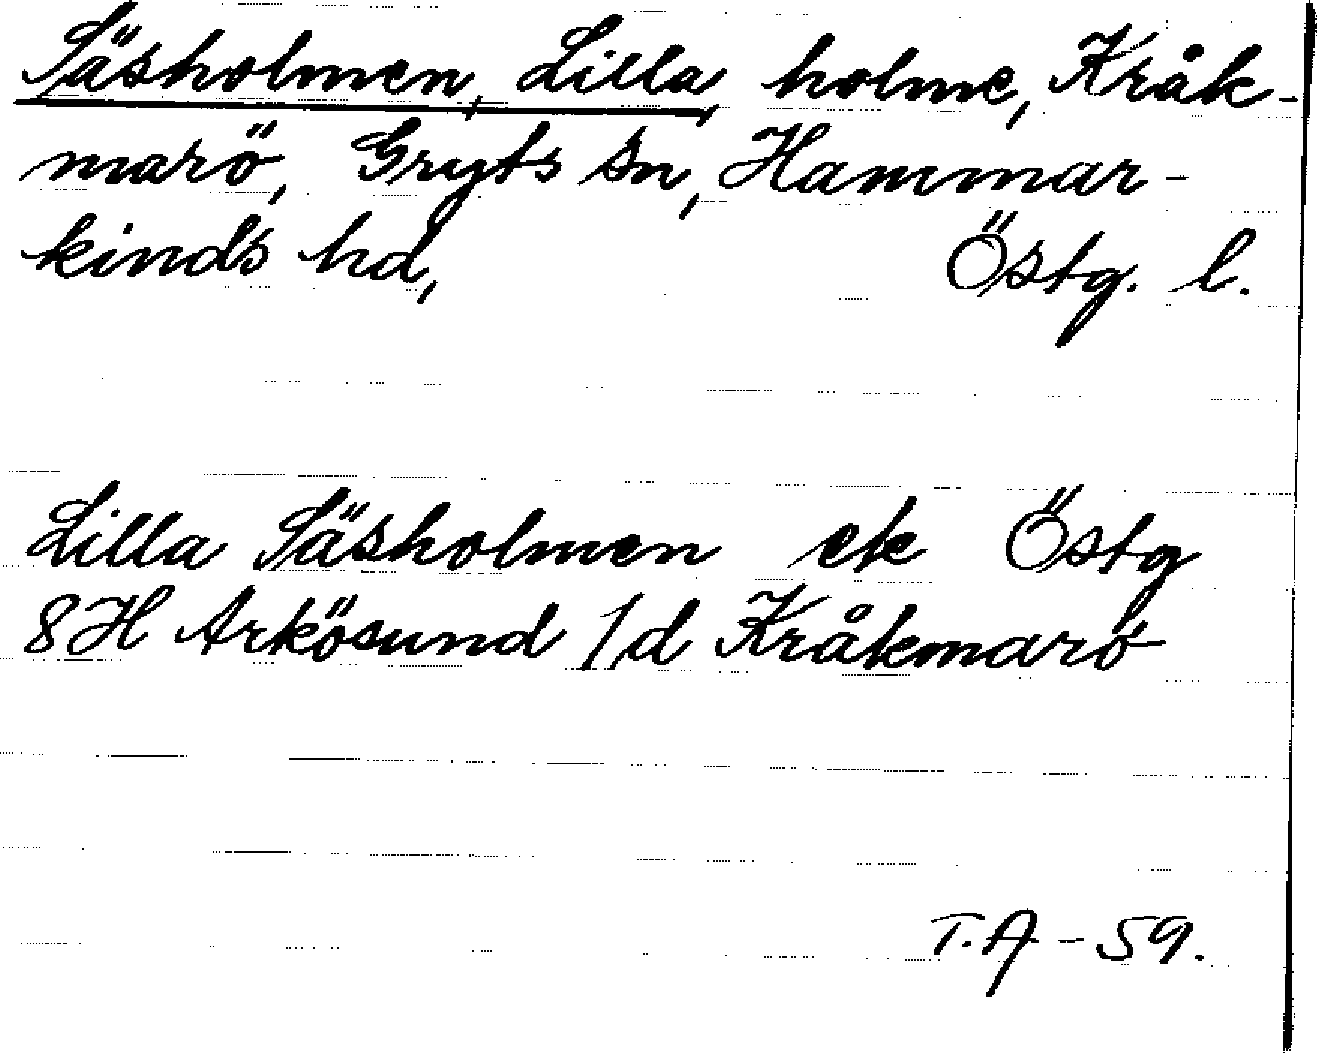 Säsholmen, Lilla, holme, Kråk-
marö, Gryts sn, Hammar-
kinds hd, Östg. l.
Lilla Säsholmen ek Östg
8H Arkösund 1d Kråkmarö
T.A -59.